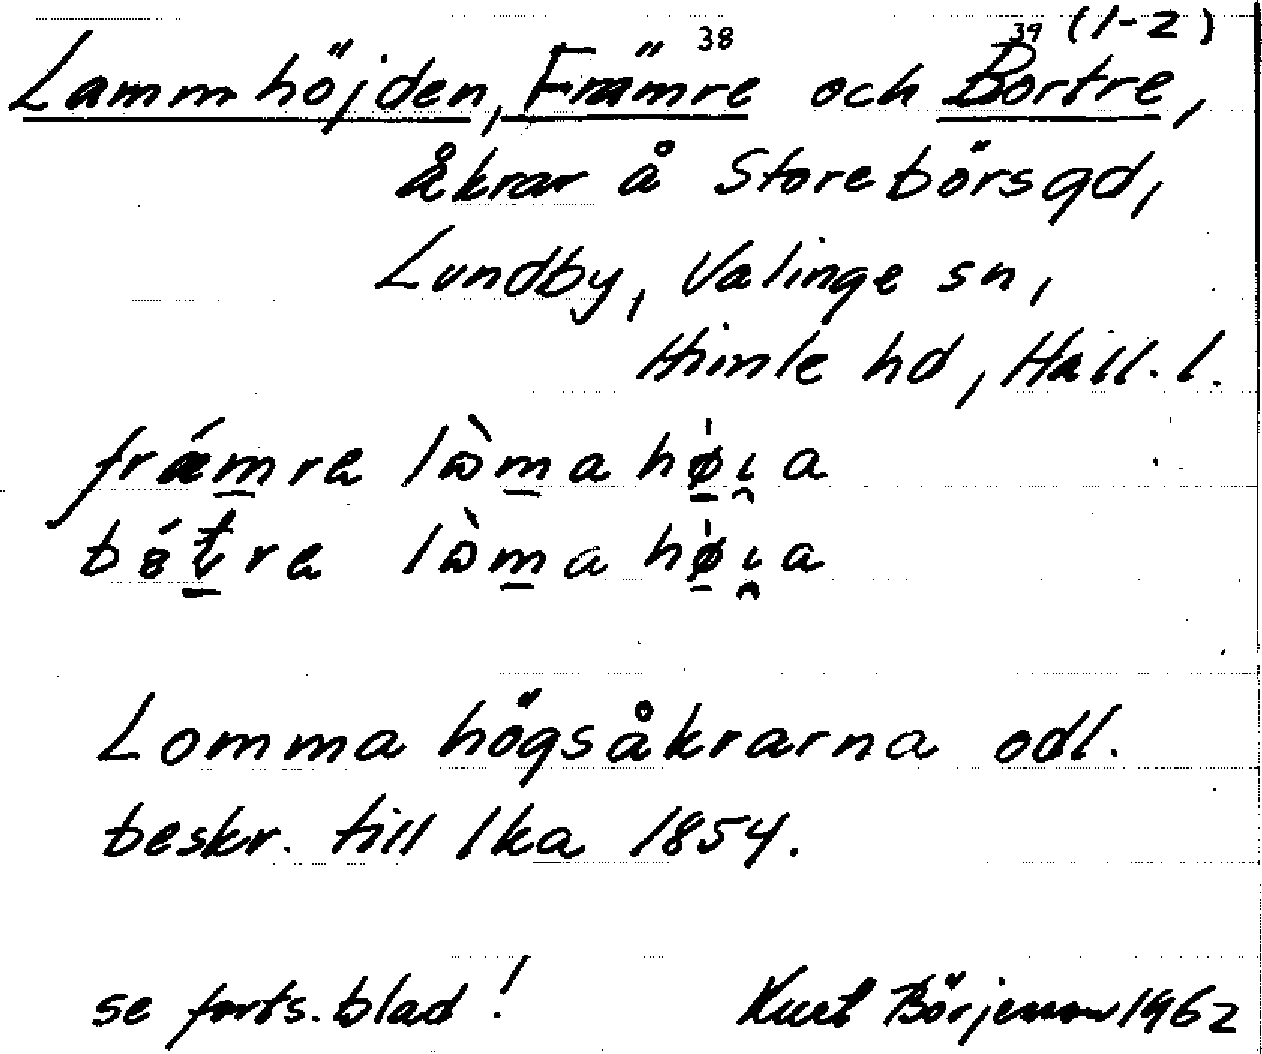 38 39 (1-2)
Lammhöjden, Främre och Bortre,
åkrar å Storebörsgd,
Lundby, Valinge sn,
Himle hd, Hall. l.
främre hø̀ı̯a
hø̀ı̯a
Lomma högsåkrarna odl.
beskr. till lka 1854.
se forts. blad! Kurt Börjesson 1962